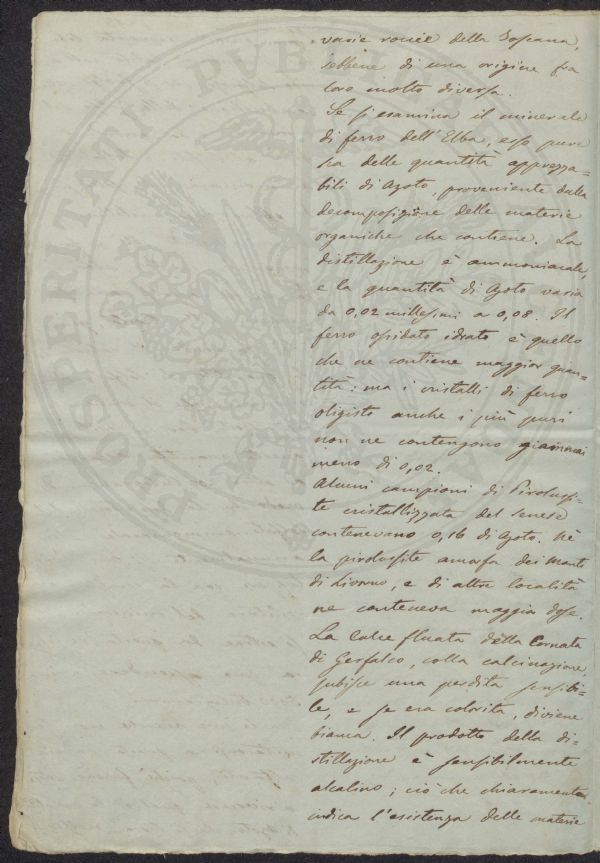 varie roccie della Toscana,
sebbene di una origine fra
loro molto diversa.
Se si esamina il minerale
di ferro dell'Elba, esso pure
ha delle quantità apprezza=
bili di Azoto, proveniente dalla
decomposizione delle materie
organiche che contiene. La
distillazione è ammoniacale,
e la quantità di Azoto varia
da 0,02 millesimi a 0,08. Il
ferro ossidato idrato è quello
che ne contiene maggior quan=
tità; ma i cristalli di ferro
oligisto anche i più puri
non ne contengono giammai
meno di 0,02.
Alcuni campioni di Pirolusi=
te cristallizzata del Senese
contenevano 0,16 di Azoto. Nè
la pirolusite amorfa dei Monti
di Livorno, e di altre località
ne conteneva maggior dose.
La Calce fluata della Cornata
di Gerfalco, colla calcinazione,
subisce una perdita sensibi=
le, e se era colorita, diviene
bianca. Il prodotto della di=
stillazione è sensibilmente
alcalino; ciò che chiaramente
indica l'esistenza delle materie
PROSPERITATI PUBLICAE